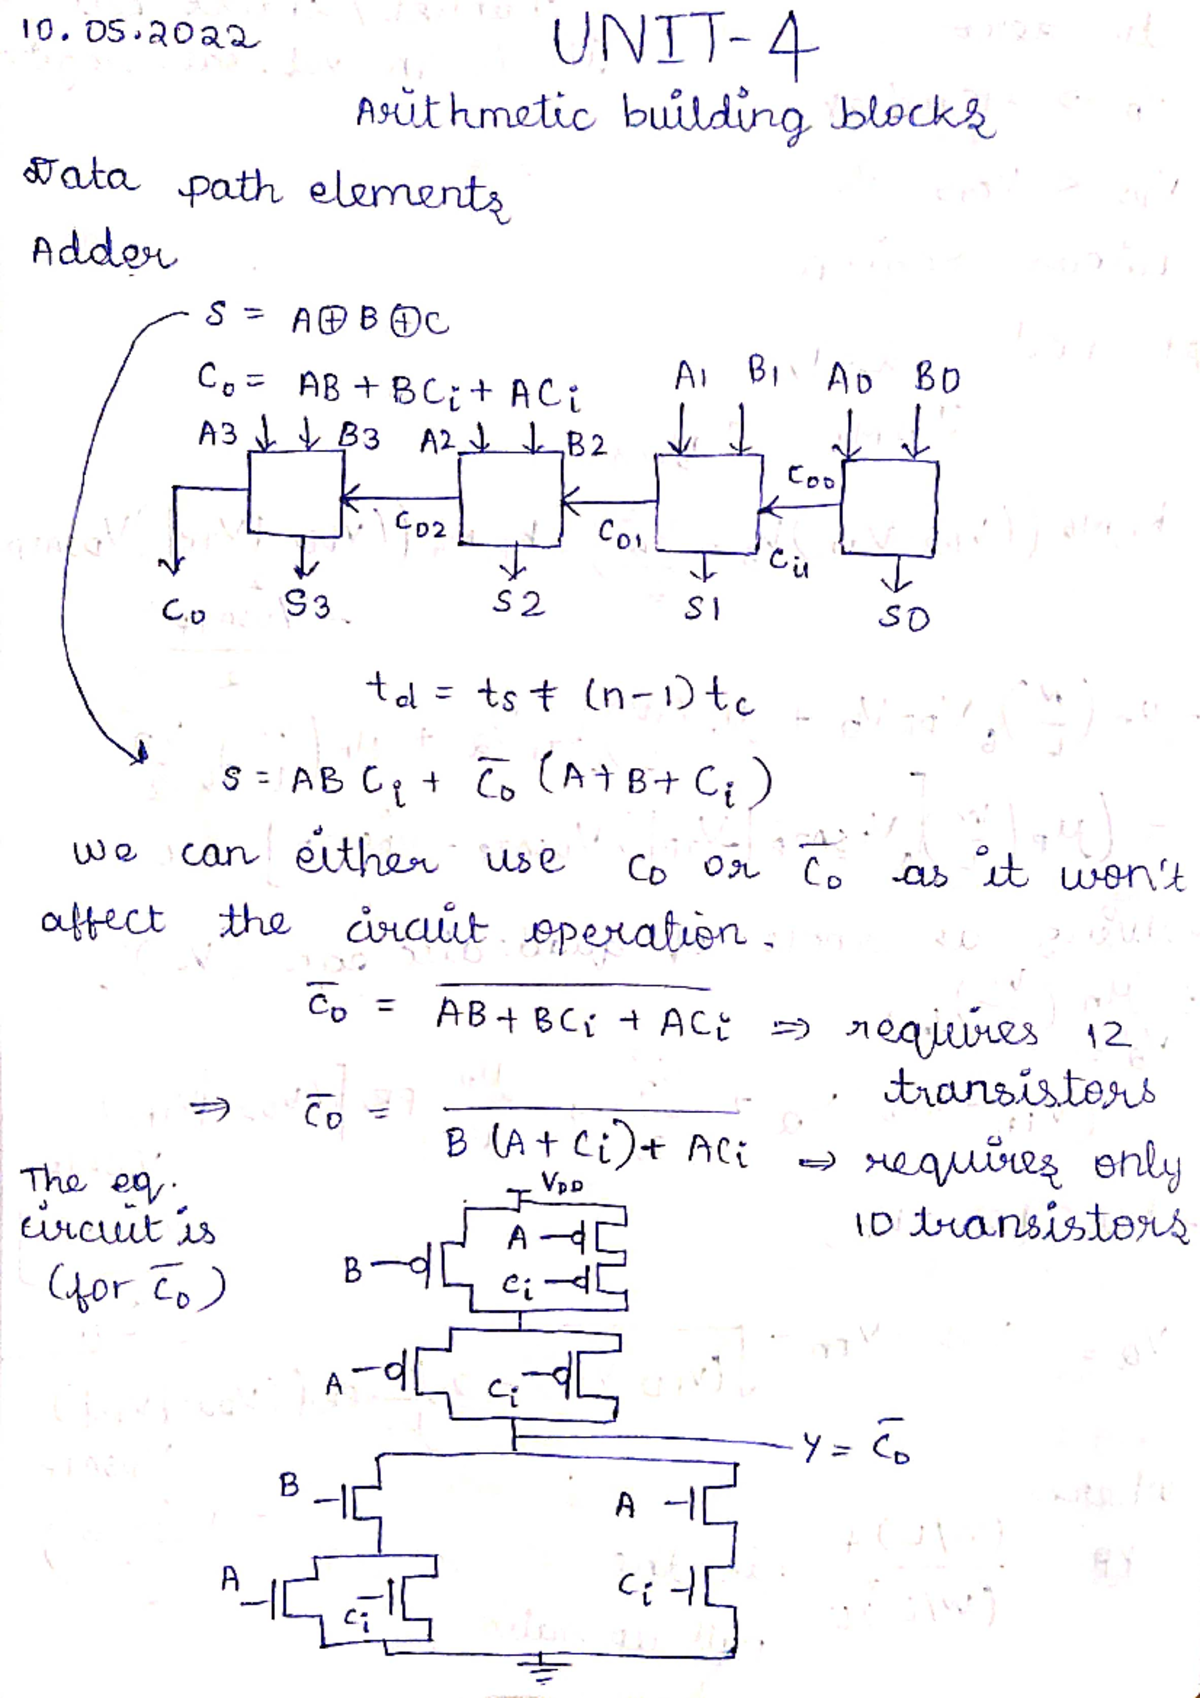 10.05.2022
UNIT-4
Arithmetic building blocks
Data path elements
Adder
S = A⊕B⊕C
C₀ = AB + BCᵢ + ACᵢ
A1 B1 A0 B0
A3 B3 A2 B2
C₀₂ C₀₁ C₀₀ Cᵢ₁
C₀ S3 S2 S1 S0
t_d = t_s + (n-1) t_c
S = AB Cᵢ + C̅₀ (A+B+Cᵢ)
we can either use C₀ or C̅₀ as it won't
affect the circuit operation.
C̅₀ = \overline{AB + BCᵢ + ACᵢ} ⇒ requires 12
transistors
⇒ C̅₀ = \overline{B (A + Cᵢ) + ACᵢ} ⇒ requires only
10 transistors
The eq.
circuit is
(for C̅₀)
V_DD
B A
Cᵢ
A Cᵢ
Y = C̅₀
B A
A Cᵢ Cᵢ